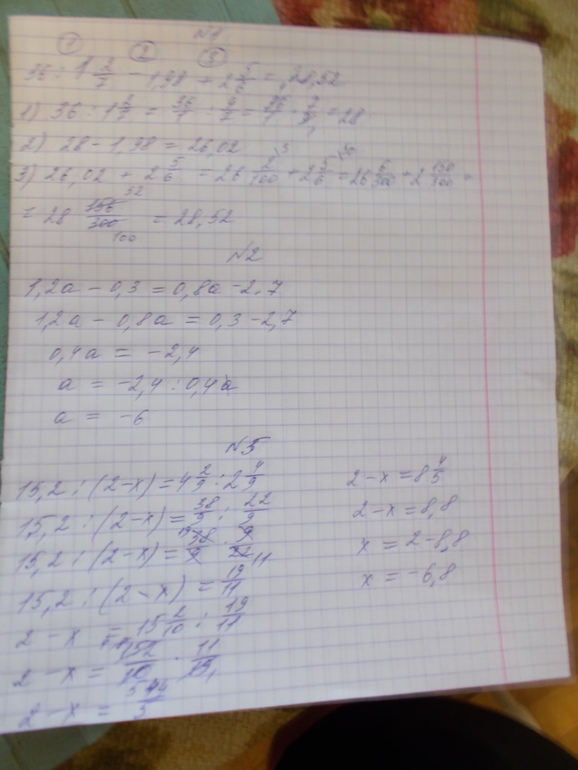 №1
① ② ③
36 : 1 2/7 − 1,98 + 2 5/6 = 28,52
1) 36 : 1 2/7 = 36/1 : 9/7 = 36/1 · 7/9 = 28
2) 28 − 1,98 = 26,02
3) 26,02 + 2 5/6 = 26 2/100 + 2 5/6 = 26 6/300 + 2 150/300 =
= 28 156/300 = 28,52
№2
1,2a − 0,3 = 0,8a − 2,7
1,2a − 0,8a = 0,3 − 2,7
0,4a = −2,4
a = −2,4 : 0,4a
a = −6
№5
15,2 : (2−x) = 4 2/9 : 2 4/9
15,2 : (2−x) = 38/9 : 22/9
15,2 : (2−x) = 38/9 · 9/22
15,2 : (2−x) = 19/11
2 − x = 15 2/10 : 19/11
2 − x = 152/10 · 11/19
2 − x = 44/5
2−x = 8 4/5
2−x = 8,8
x = 2−8,8
x = −6,8